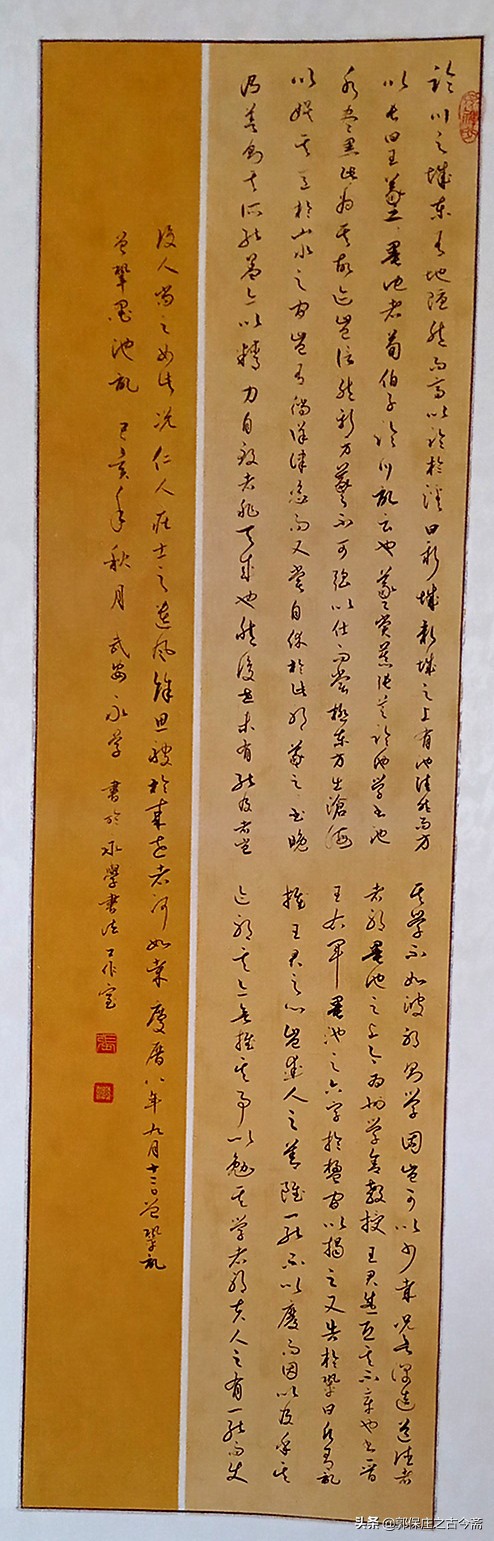 臨川之城東有地隱然而高以臨於溪曰新城新城之上有池洼然而方
以長曰王羲之墨池者荀伯子臨川記云也羲之嘗慕張芝臨池學書池
水盡黑此為其故迹豈信然邪方羲之不可強以仕而嘗極東方出滄海
以娛其意於山水之間豈有徜徉肆恣而又嘗自休於此邪羲之之書晚
乃善則其所能蓋亦以精力自致者非天成也然後世未有能及者豈
其學不如彼邪則學固豈可以少哉況欲深造道德者
者邪墨池之上今為州學舍教授王君盛恐其不章也書晉
王右軍墨池之六字於楹間以揭之又告於鞏曰願有記
推王君之心豈愛人之善雖一能不以廢而因以及乎其
迹邪其亦欲推其事以勉其學者邪夫人之有一能而使
後人尚之如此況仁人莊士之遺風餘思被於來世者何如哉慶曆八年九月十二日曾鞏記
曾鞏墨池記 己亥年秋月 武安永學書於永學書法工作室
头条@郭保庄之古今斋